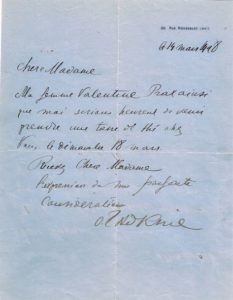 le 14 mars 1928
Chère Madame
Ma femme Valentine Prax ainsi
que moi serions heureux de venir
prendre une tasse de thé chez
Vous le dimanche 18 mars
Chère Madame
l'expression de ma parfaite
consideration
O. Zadkine